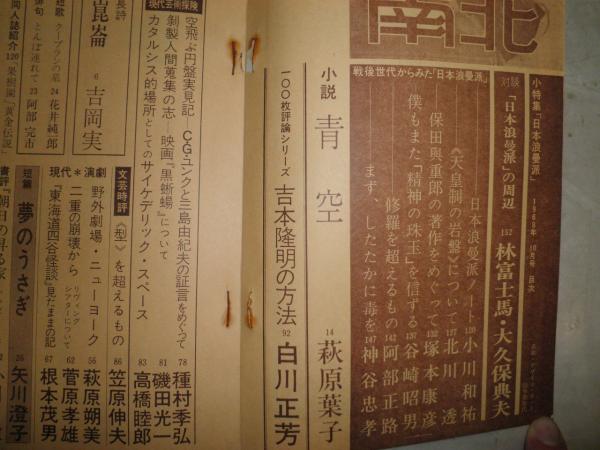 南北
小特集「日本浪曼派」
1968年 10月号 目次
対談
「日本浪曼派」の周辺 152 林富士馬・大久保典夫
戦後世代からみた「日本浪曼派」
日本浪曼派ノート 120 小川和佑
《天皇制の岩盤》について 127 北川透
保田與重郎の著作をめぐって 132 塚本康彦
僕もまた「精神の珠玉」を信ずる 137 谷崎昭男
修羅を超えるもの 142 阿部正路
まず、したたかに毒を 147 神谷忠孝
小説 青空 14 萩原葉子
一〇〇枚評論シリーズ 吉本隆明の方法 92 白川正芳
現代芸術探険
空飛ぶ円盤実見記 C・G・ユンクと三島由紀夫の証言をめぐって 78 種村季弘
剝製人間蒐集の志 映画『黒蜥蜴』について 81 磯田光一
カタルシス的場所としてのサイケデリック・スペース 83 高橋睦郎
文芸時評 《型》を超えるもの 86 笠原伸夫
現代*演劇
野外劇場・ニューヨーク 56 萩原朔美
二重の崩壊から リヴィングシアターについて 62 菅原孝雄
『東海道四谷怪談』見たままの記 67 根本茂男
長詩
崑崙 6 吉岡実
短編 夢のうさぎ 26 矢川澄子
短歌 クープランの墓 24 花井純郎
俳句 とんぼ連れて 23 阿部完市
同人誌紹介 120 果樹園「黄金伝説」
書評『朝日の昇る家